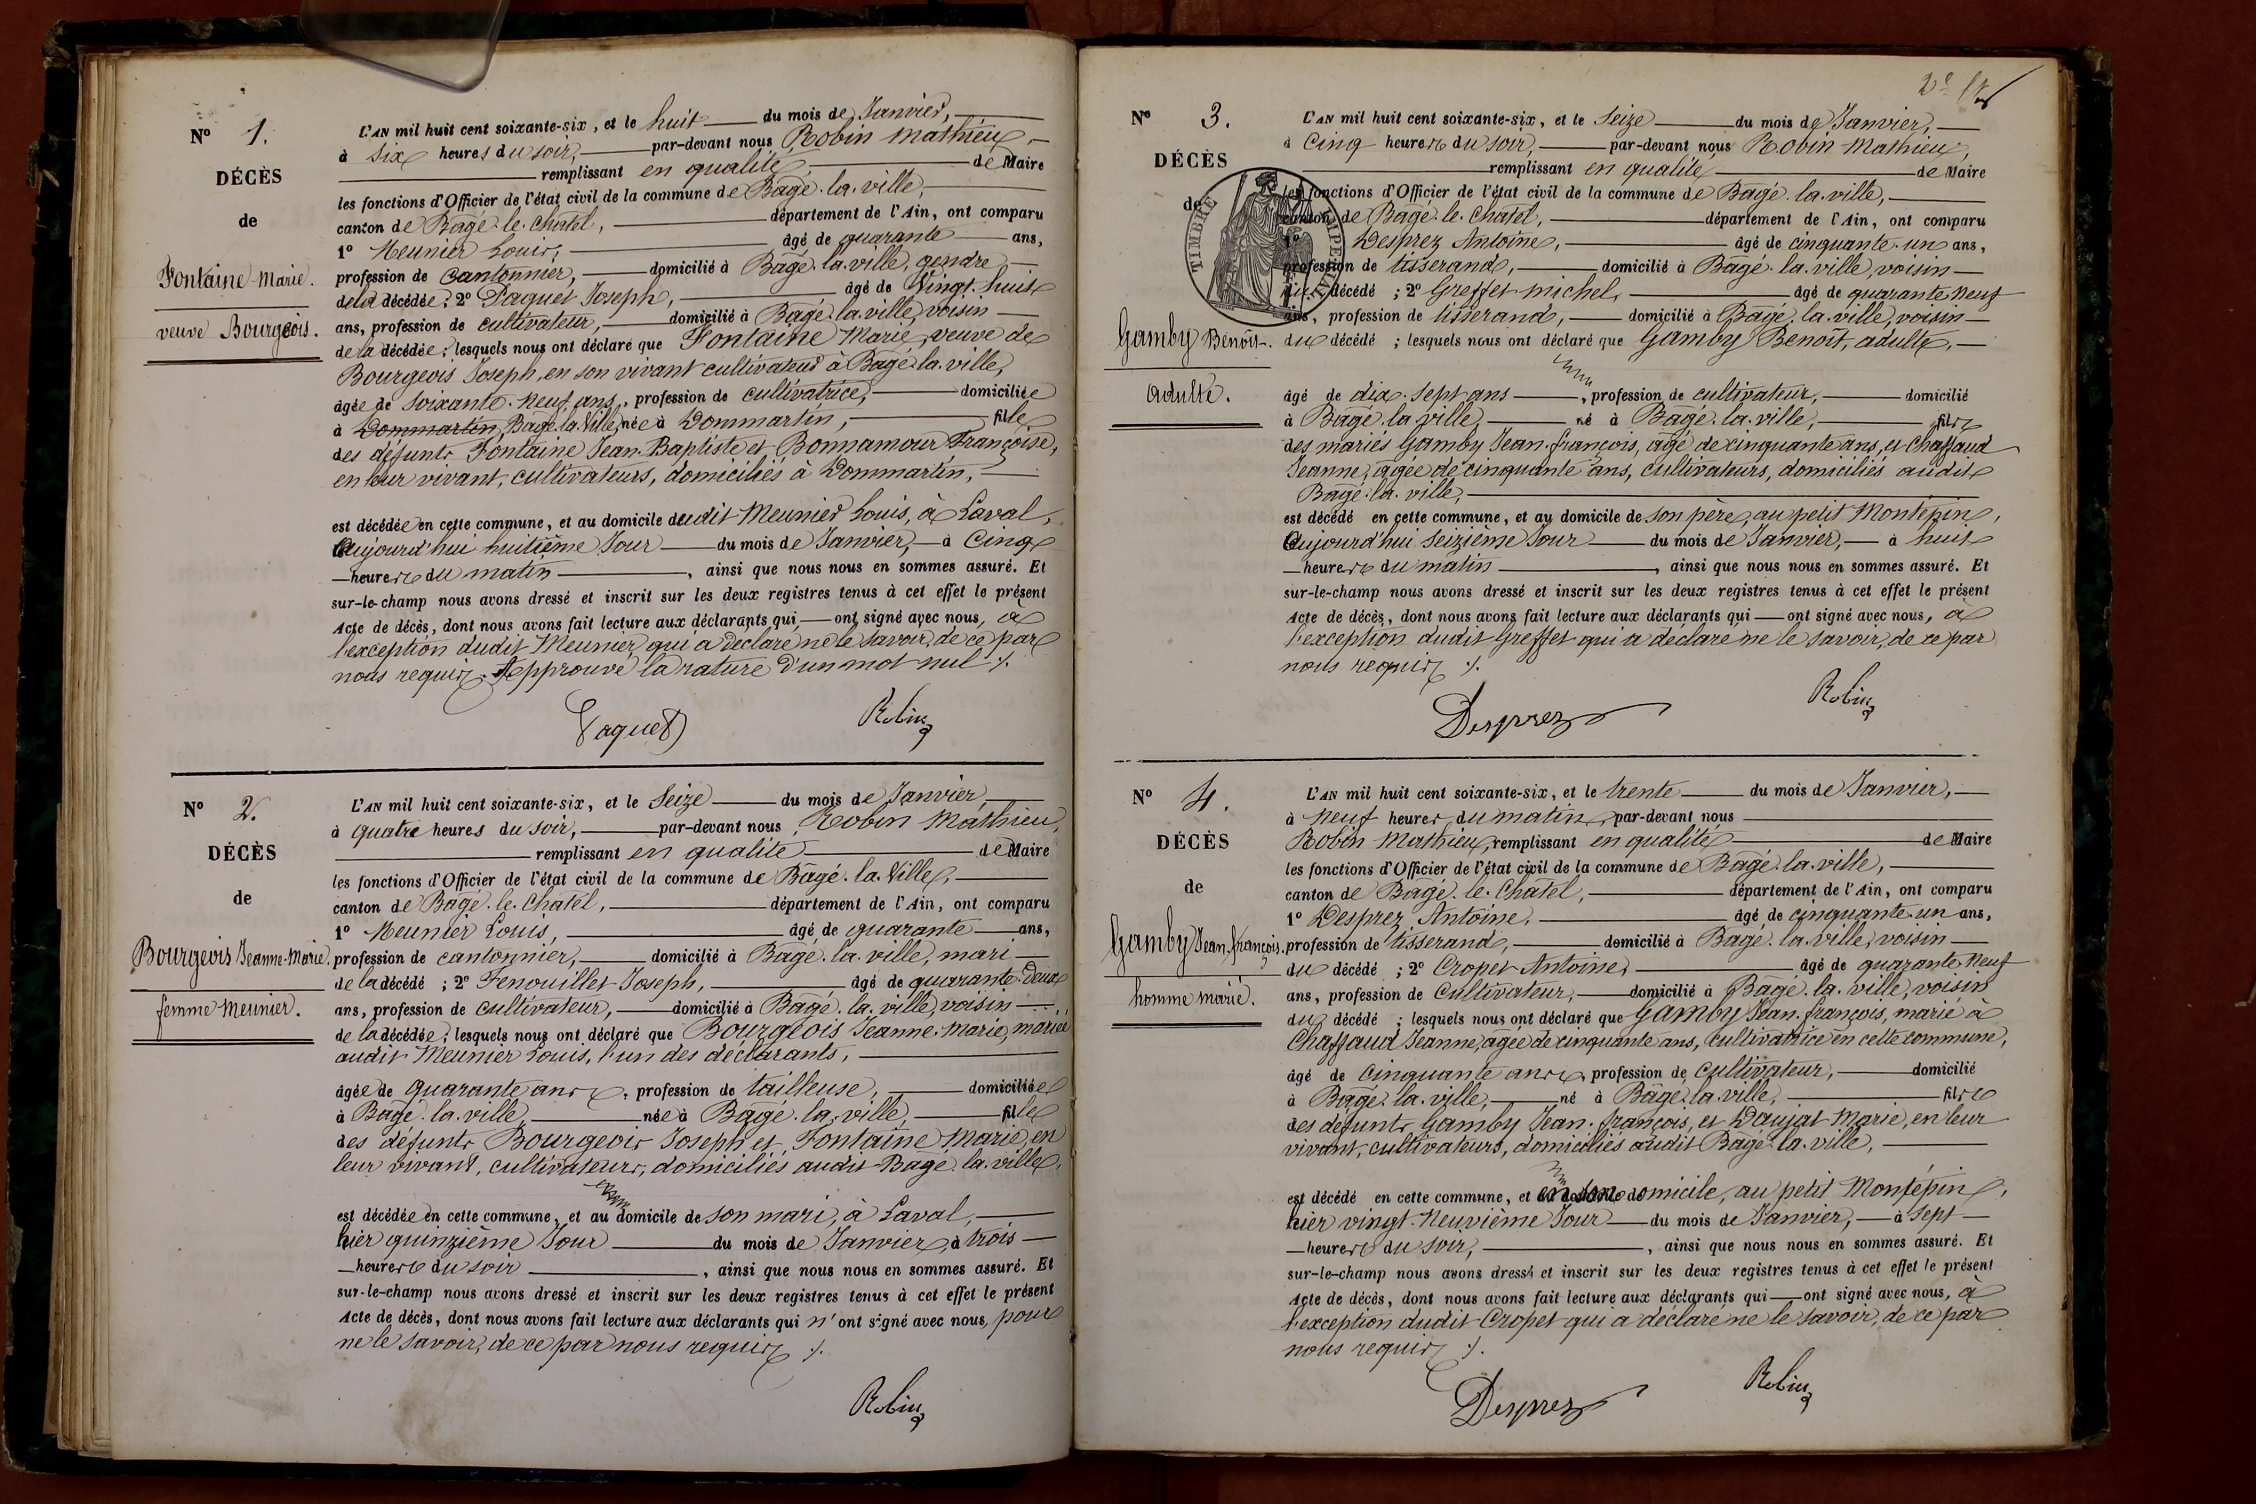 N° 1.
DÉCÈS
de
Fontaine Marie.
veuve Bourgeois.
L'AN mil huit cent soixante-six, et le huit du mois de Janvier,
à Six heures du soir, par-devant nous Robin Mathieu,
remplissant en qualité de Maire
les fonctions d'Officier de l'état civil de la commune de Bagé-la-ville,
canton de Bagé-le-Chatel, département de l'Ain, ont comparu
1° Meunier Louis, âgé de quarante ans,
profession de Cantonnier, domicilié à Bagé-la-ville, gendre
de la décédée; 2° Paquet Joseph, âgé de Vingt-huit
ans, profession de cultivateur, domicilié à Bagé-la-ville, voisin
de la décédée; lesquels nous ont déclaré que Fontaine Marie, veuve de
Bourgeois Joseph, en son vivant cultivateur à Bagé-la-ville,
âgée de soixante-neuf ans, profession de cultivatrice, domiciliée
à Dommartin, Bagé-la-Ville, née à Dommartin, fille
des défunts Fontaine Jean-Baptiste et Bonnamour Françoise,
en leur vivant, cultivateurs, domiciliés à Dommartin,
est décédée en cette commune, et au domicile dudit Meunier Louis, à Laval,
aujourd'hui huitième Jour du mois de Janvier, à Cinq
heures du matin, ainsi que nous nous en sommes assuré. Et
sur-le-champ nous avons dressé et inscrit sur les deux registres tenus à cet effet le présent
Acte de décès, dont nous avons fait lecture aux déclarants qui ont signé avec nous, à
l'exception dudit Meunier qui a déclaré ne le savoir, de ce par
nous requis. Approuvé la rature d'un mot nul ./.
Paquet Robin
N° 2.
DÉCÈS
de
Bourgeois Jeanne-Marie.
femme Meunier.
L'AN mil huit cent soixante-six, et le Seize du mois de Janvier,
à quatre heures du soir, par-devant nous, Robin Mathieu,
remplissant en qualité de Maire
les fonctions d'Officier de l'état civil de la commune de Bagé-la-Ville,
canton de Bagé-le-Chatel, département de l'Ain, ont comparu
1° Meunier Louis, âgé de quarante ans,
profession de cantonnier, domicilié à Bagé-la-ville, mari
de la décédé; 2° Fenouillet Joseph, âgé de quarante-Deux
ans, profession de cultivateur, domicilié à Bagé-la-ville, voisin
de la décédée; lesquels nous ont déclaré que Bourgeois Jeanne-Marie, mariée
audit Meunier Louis, l'un des déclarants,
âgée de quarante ans, profession de tailleuse, domiciliée
à Bagé-la-ville, née à Bagé-la-ville, fille
des défunts Bourgeois Joseph et Fontaine Marie, en
leur vivant, cultivateurs, domiciliés audit Bagé-la-ville,
est décédée en cette commune, et au domicile de son mari, à Laval,
hier quinzième Jour du mois de Janvier, à trois
heures du soir, ainsi que nous nous en sommes assuré. Et
sur-le-champ nous avons dressé et inscrit sur les deux registres tenus à cet effet le présent
Acte de décès, dont nous avons fait lecture aux déclarants qui n'ont signé avec nous, pour
ne le savoir, de ce par nous requis ./.
Robin
N° 3.
DÉCÈS
de
TIMBRE IMPERIAL
Gamby Benoît.
adulte.
L'AN mil huit cent soixante-six, et le Seize du mois de Janvier,
à Cinq heures du soir, par-devant nous Robin Mathieu,
remplissant en qualité de Maire
les fonctions d'Officier de l'état civil de la commune de Bagé-la-ville,
canton de Bagé-le-Chatel, département de l'Ain, ont comparu
1° Desprez Antoine, âgé de cinquante-un ans,
profession de tisserand, domicilié à Bagé-la-ville, voisin
du décédé; 2° Greffet Michel, âgé de quarante-neuf
ans, profession de tisserand, domicilié à Bagé-la-ville, voisin
du décédé; lesquels nous ont déclaré que Gamby Benoît, adulte,
âgé de dix-sept ans, profession de cultivateur, domicilié
à Bagé-la-ville, né à Bagé-la-ville, fils
des mariés Gamby Jean-françois, âgé de cinquante ans, et Chaffaud
Jeanne, âgée de cinquante ans, cultivateurs, domiciliés audit
Bagé-la-ville,
est décédé en cette commune, et au domicile de son père, au petit Montépin,
aujourd'hui Seizième Jour du mois de Janvier, à huit
heures du matin, ainsi que nous nous en sommes assuré. Et
sur-le-champ nous avons dressé et inscrit sur les deux registres tenus à cet effet le présent
Acte de décès, dont nous avons fait lecture aux déclarants qui ont signé avec nous, à
l'exception dudit Greffet qui a déclaré ne le savoir, de ce par
nous requis ./.
Desprez Robin
N° 4.
DÉCÈS
de
Gamby Jean-françois.
homme marié.
L'AN mil huit cent soixante-six, et le trente du mois de Janvier,
à Neuf heures du matin, par-devant nous
Robin Mathieu, remplissant en qualité de Maire
les fonctions d'Officier de l'état civil de la commune de Bagé-la-ville,
canton de Bagé-le-Chatel, département de l'Ain, ont comparu
1° Desprez Antoine, âgé de cinquante-un ans,
profession de tisserand, domicilié à Bagé-la-ville, voisin
du décédé; 2° Cropet Antoine, âgé de quarante-Neuf
ans, profession de Cultivateur, domicilié à Bagé-la-ville, voisin
du décédé; lesquels nous ont déclaré que Gamby Jean-françois, marié à
Chaffaud Jeanne, âgée de cinquante ans, cultivatrice en cette commune,
âgé de Cinquante ans, profession de cultivateur, domicilié
à Bagé-la-ville, né à Bagé-la-ville, fils
des défunts Gamby Jean-françois, et Daujat Marie, en leur
vivant, cultivateurs, domiciliés audit Bagé-la-ville,
est décédé en cette commune, et en son domicile, au petit Montépin,
hier vingt-neuvième Jour du mois de Janvier, à Sept
heures du soir, ainsi que nous nous en sommes assuré. Et
sur-le-champ nous avons dressé et inscrit sur les deux registres tenus à cet effet le présent
Acte de décès, dont nous avons fait lecture aux déclarants qui ont signé avec nous, à
l'exception dudit Cropet qui a déclaré ne le savoir, de ce par
nous requis ./.
Desprez Robin